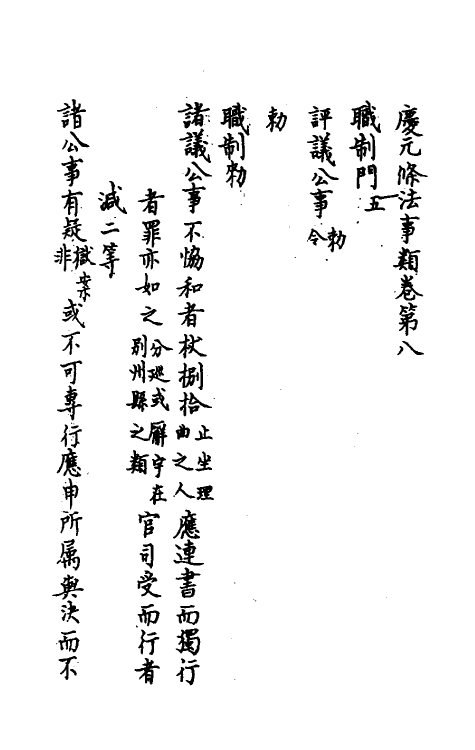 慶元條法事類卷第八
職制門五
評議公事 勅令
勅
職制勅
諸議公事不恊和者杖捌拾止坐理曲之人應連書而獨行
者罪亦如之分廵或廨宇在別州縣之類官司受而行者
減二等
諸公事有疑非獄案或不可專行應申所属與決而不